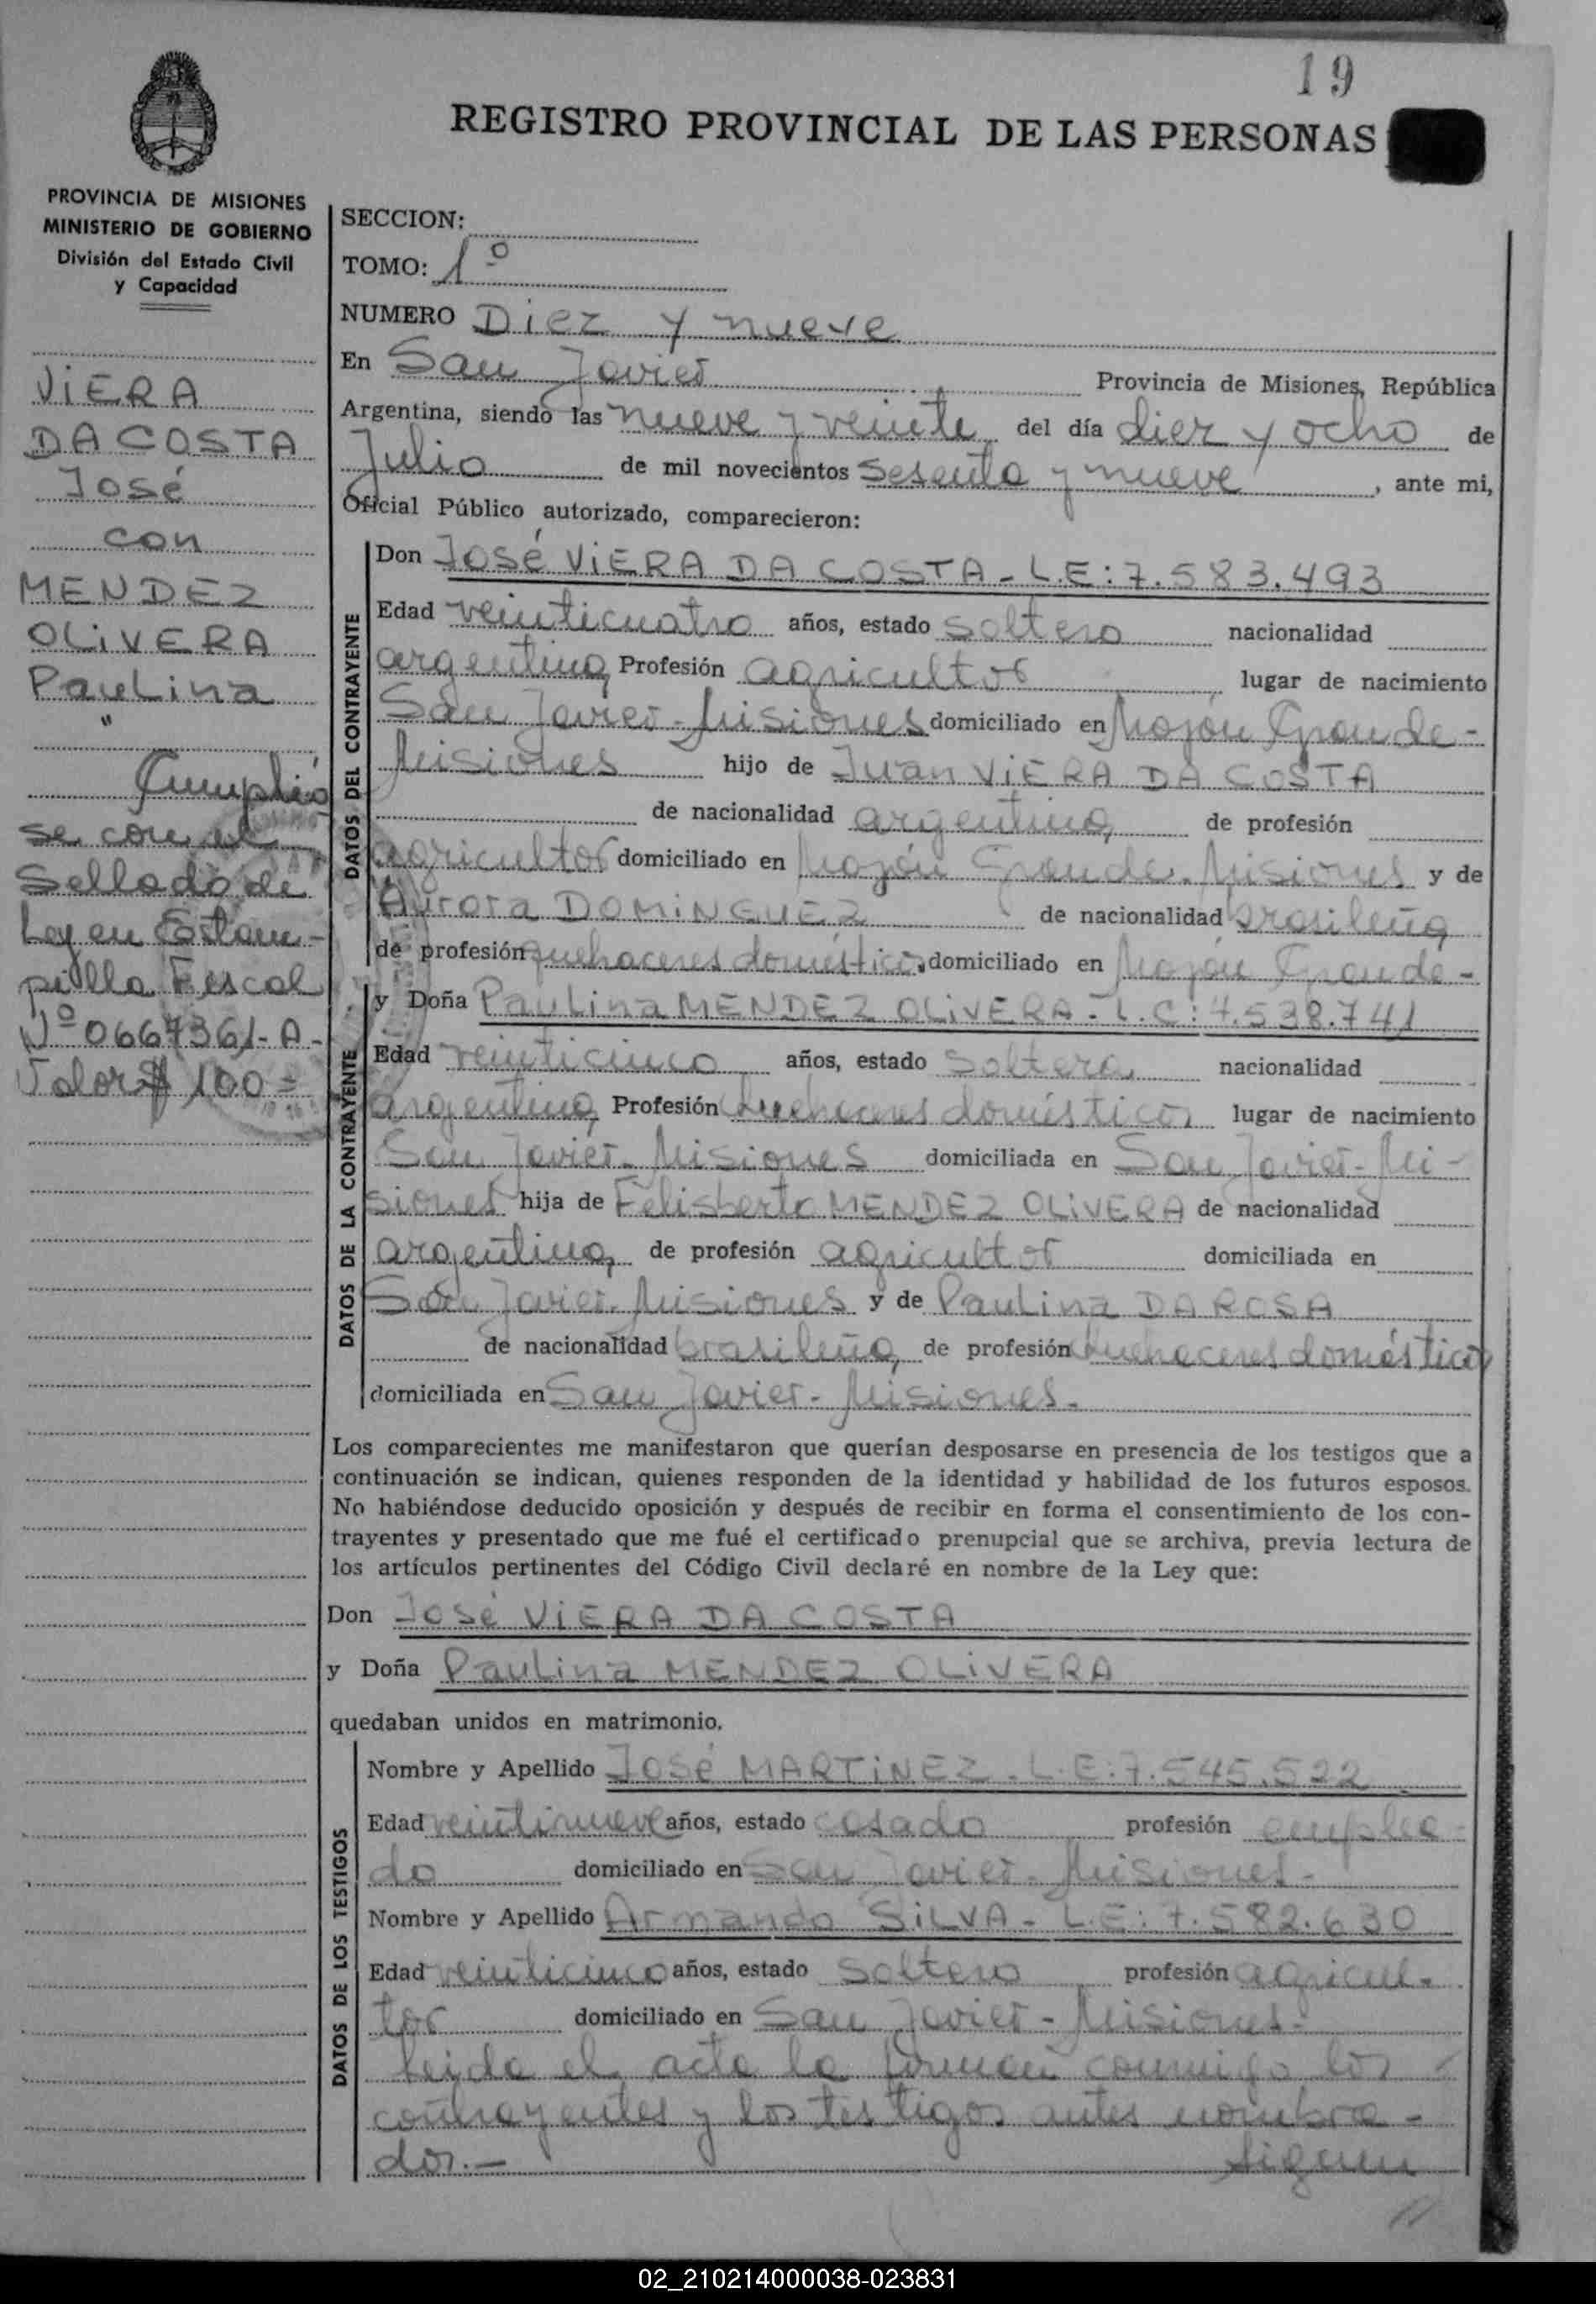 19
REGISTRO PROVINCIAL DE LAS PERSONAS
PROVINCIA DE MISIONES
MINISTERIO DE GOBIERNO
División del Estado Civil
y Capacidad
VIERA
DA COSTA
José
con
MENDEZ
OLIVERA
Paulina
"
Cumplió
se con el
Sellado de
Ley en Estam-
pilla Fiscal
Nº 0667361-A-
Valor $ 100=
SECCION:
TOMO: 1º
NUMERO Diez y nueve
En San Javier Provincia de Misiones, República
Argentina, siendo las nueve y veinte del día diez y ocho de
Julio de mil novecientos sesenta y nueve, ante mi,
Oficial Público autorizado, comparecieron:
DATOS DEL CONTRAYENTE
Don José VIERA DA COSTA - L.E: 7.583.493
Edad veinticuatro años, estado soltero nacionalidad
argentina, Profesión agricultor lugar de nacimiento
San Javier - Misiones domiciliado en Mojón Grande -
Misiones hijo de Juan VIERA DA COSTA
de nacionalidad argentina, de profesión
agricultor domiciliado en Mojón Grande - Misiones y de
Aurora DOMINGUEZ de nacionalidad brasileña
de profesión quehaceres domésticos, domiciliado en Mojón Grande -
DATOS DE LA CONTRAYENTE
y Doña Paulina MENDEZ OLIVERA - L.C: 4.538.741
Edad veinticinco años, estado soltera nacionalidad
argentina, Profesión quehaceres domésticos lugar de nacimiento
San Javier - Misiones domiciliada en San Javier - Mi-
siones hija de Felisberto MENDEZ OLIVERA de nacionalidad
argentina, de profesión agricultor domiciliada en
San Javier - Misiones y de Paulina DA ROSA
de nacionalidad brasileña, de profesión quehaceres domésticos
domiciliada en San Javier - Misiones.
Los comparecientes me manifestaron que querían desposarse en presencia de los testigos que a
continuación se indican, quienes responden de la identidad y habilidad de los futuros esposos.
No habiéndose deducido oposición y después de recibir en forma el consentimiento de los con-
trayentes y presentado que me fué el certificado prenupcial que se archiva, previa lectura de
los artículos pertinentes del Código Civil declaré en nombre de la Ley que:
Don José VIERA DA COSTA
y Doña Paulina MENDEZ OLIVERA
quedaban unidos en matrimonio.
DATOS DE LOS TESTIGOS
Nombre y Apellido José MARTINEZ - L.E: 7.545.522
Edad veintinueve años, estado casado profesión emplea-
do domiciliado en San Javier - Misiones -
Nombre y Apellido Armando SILVA - L.E: 7.582.630
Edad veinticinco años, estado soltero profesión agricul-
tor domiciliado en San Javier - Misiones -
leida el acta la firman conmigo los
contrayentes y los testigos antes nombra-
dos.- Siguen
02_210214000038-023831